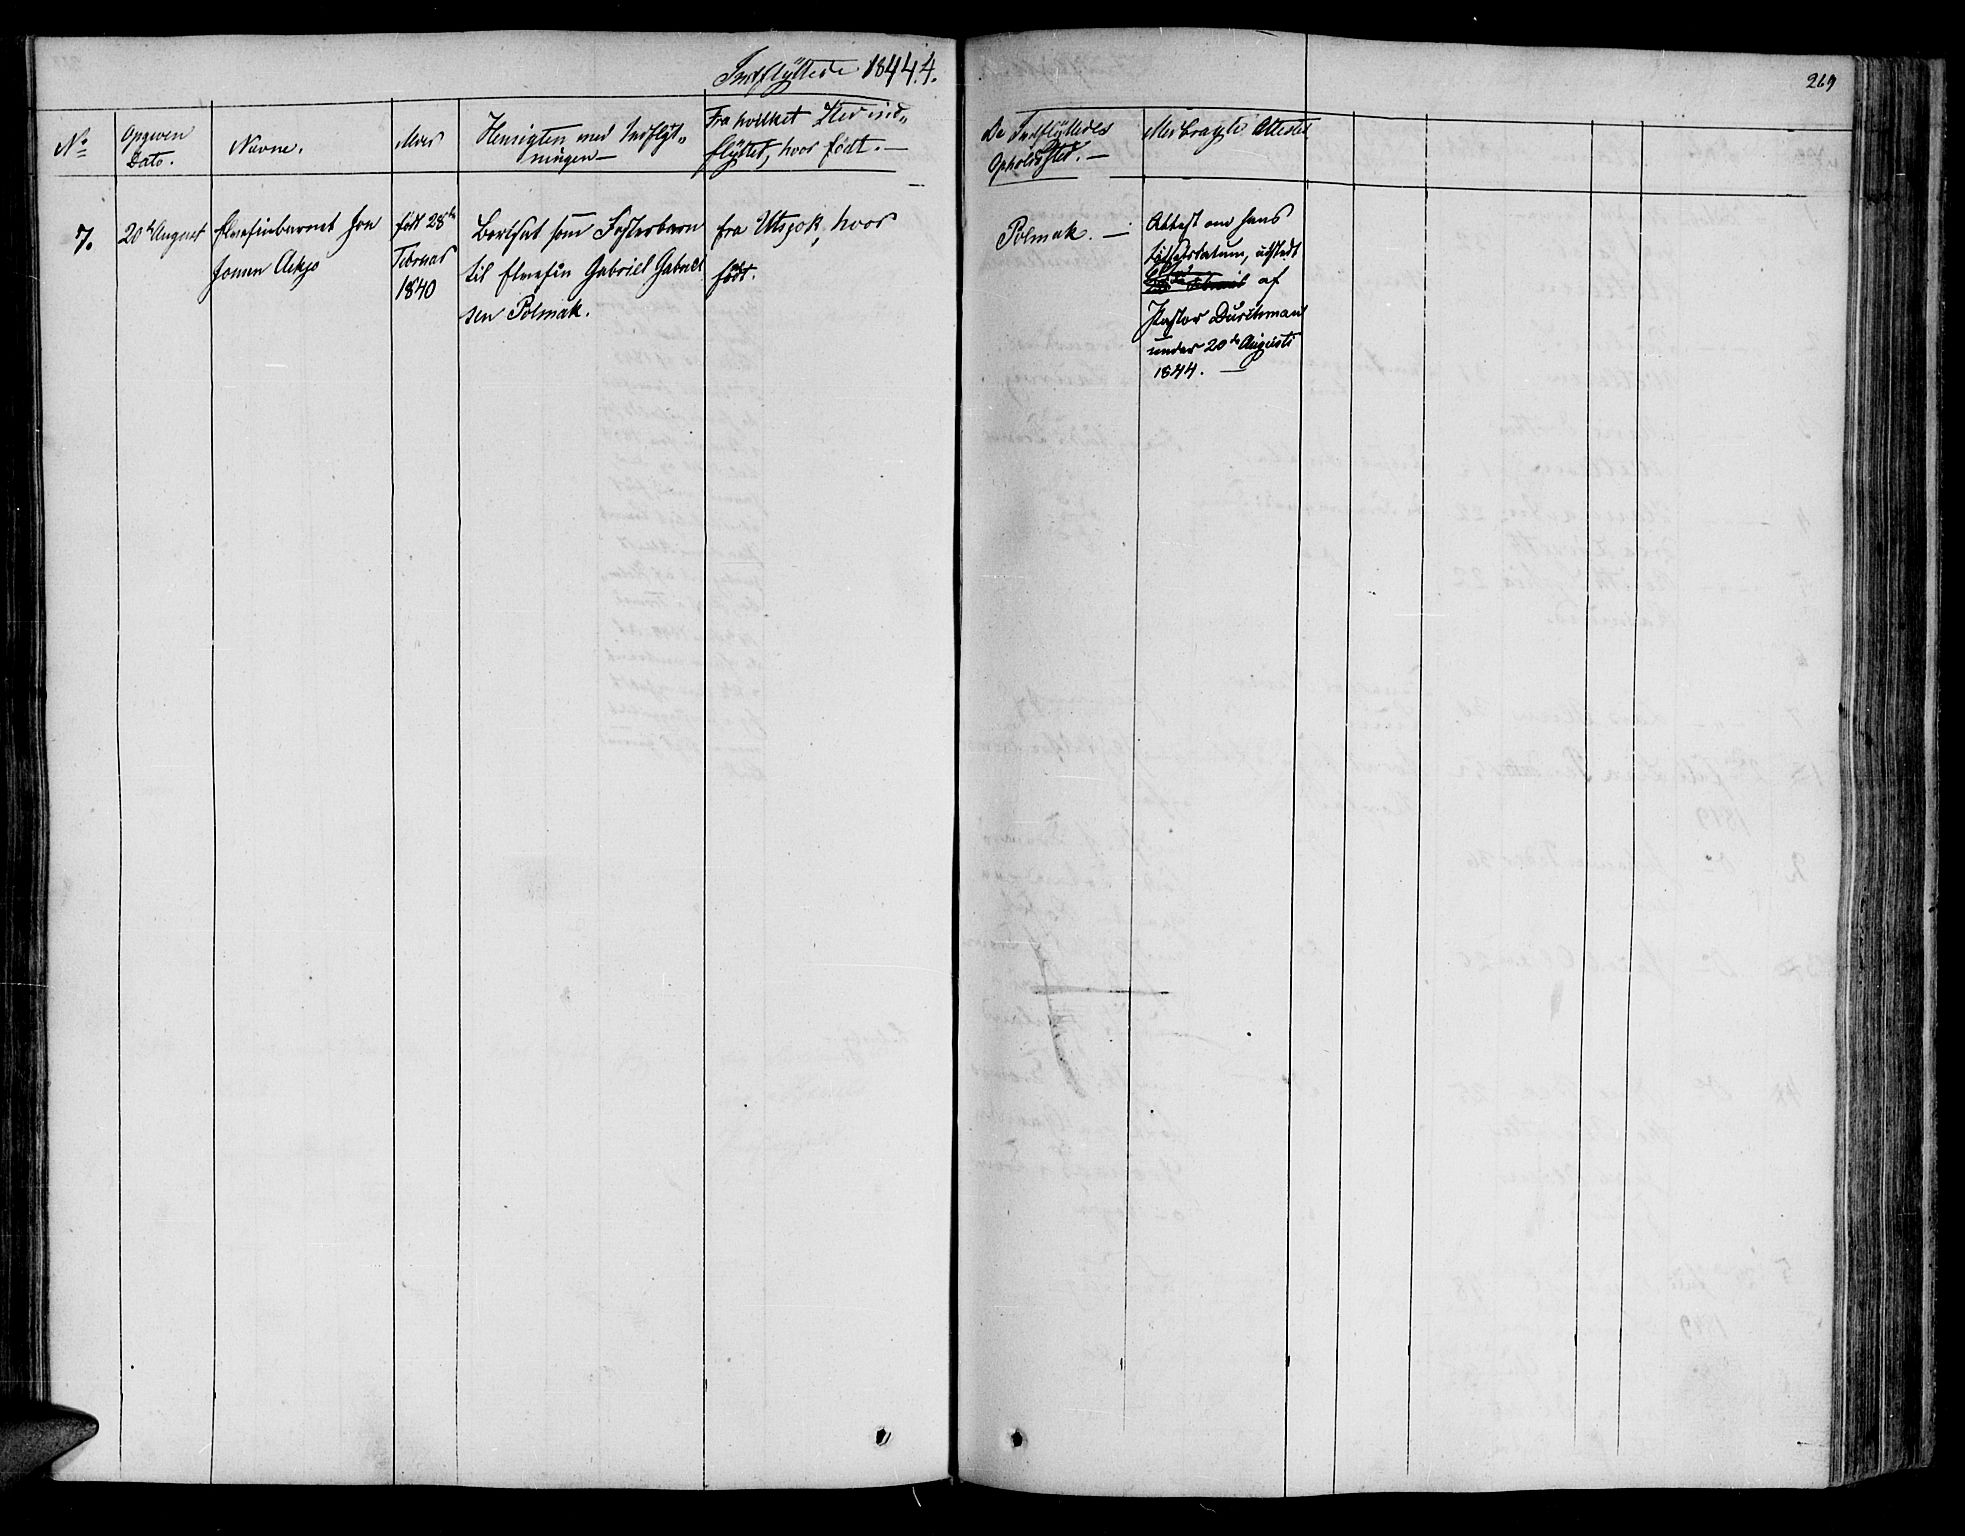 Indflyttede 1844.
269
No
Opgiven Dato.
Navne.
Alder
Hensigten med Indflyt-
ningen —
Fra hvilket Sted ind-
flyttet, hvor født. —
De Indflyttedes
Opholdssted. —
Medbragte Attester
7.
20de August
Elvefinbarnet Jon
Jonsen Aikjo
født 28de
Februar
1840
Bortsat som Fosterbarn
til Elvefin Gabriel Gabriel
sen Polmak.
fra Utsjok, hvor
født.
Polmak. —
Attest om hans
udstedt
af
Pastor Durchman
under 20de Augusti
1844. —